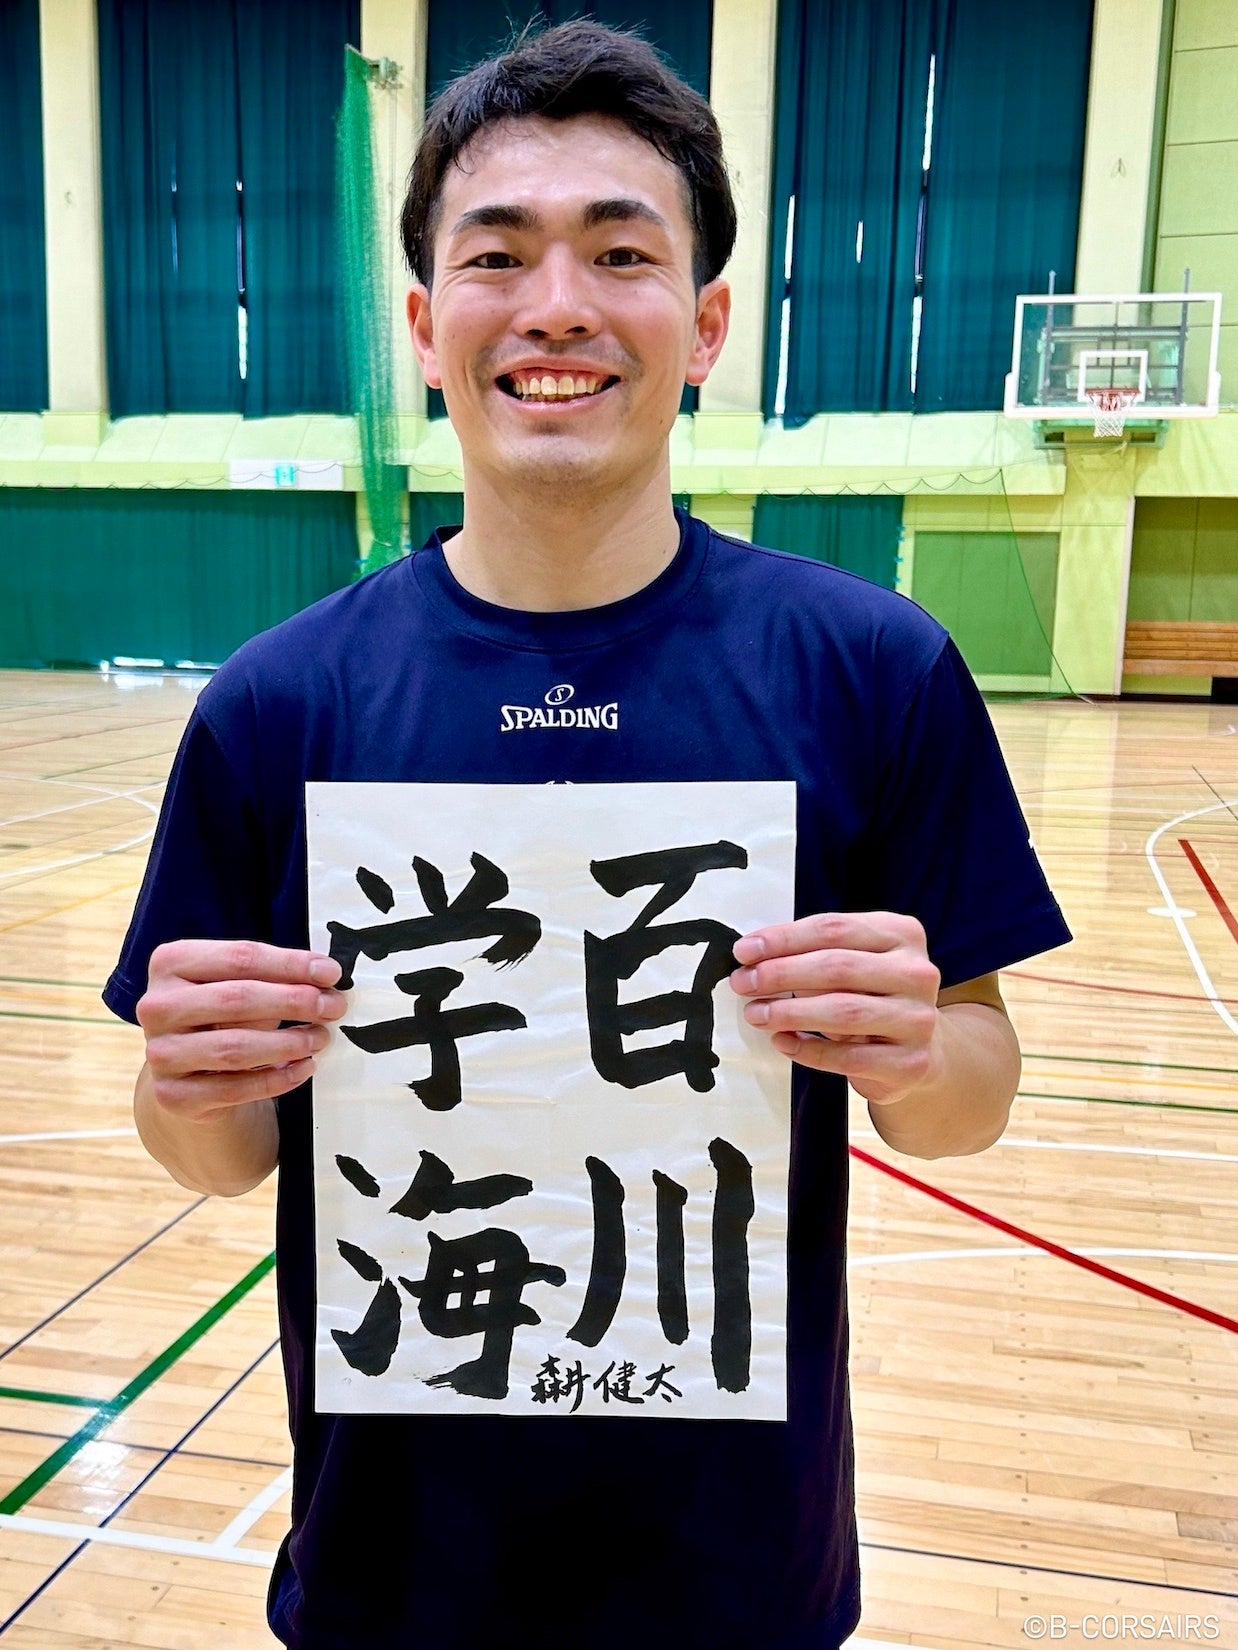 SPALDING
百川
学海
森井健太
©B-CORSAIRS